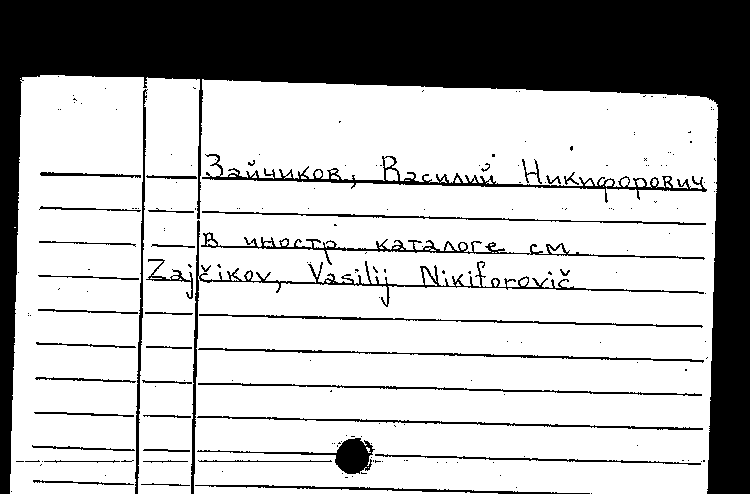 Зайчиков, Василий Никифорович
в иностр. каталоге см.
Zajčikov, Vasilij Nikiforovič